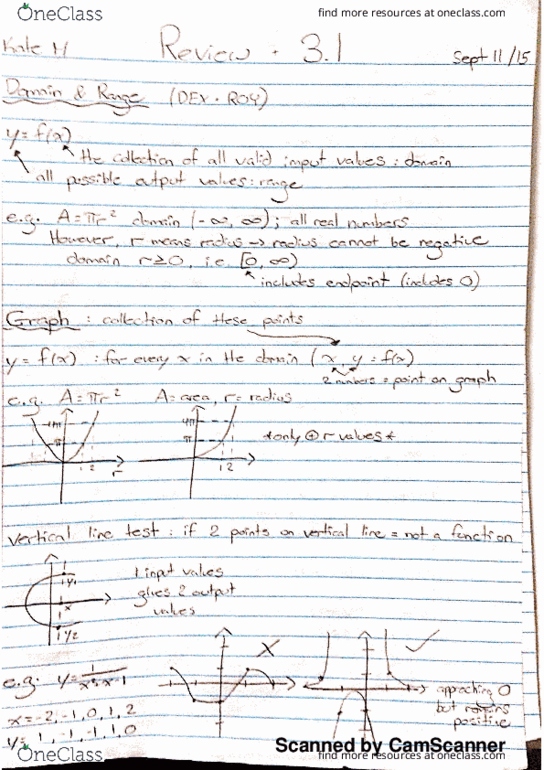 OneClass
find more resources at oneclass.com
Kate M
Review - 3.1
Sept 11/15
Domain & Range (DEX · ROY)
y = f(x)
the collection of all valid input values : domain
all possible output values : range
e.g. A = πr² domain (-∞, ∞) ; all real numbers
However, r means radius → radius cannot be negative
domain r ≥ 0, i.e. [0, ∞)
includes endpoint (incldes 0)
Graph : collection of these points
y = f(x) : for every x in the domain (x, y = f(x)
2 numbers = point on graph
e.g. A = πr² A = area, r = radius
4π
π
1 2
r
4π
π
1 2
*only ⊕ r values*
Vertical line test : if 2 points on vertical line = not a function
y1
x
y2
1 input values
gives 2 output
values
X
✓
e.g. y =
x = -2, -1, 0, 1, 2
y = 1, -1, -1, 1, 0
approaching 0
but
positive
Scanned by CamScanner
OneClass
find more resources at oneclass.com